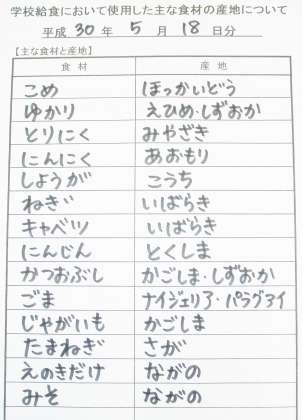 学校給食において使用した主な食材の産地について
平成 30 年 5 月 18 日分
【主な食材と産地】
食材 産地
こめ ほっかいどう
ゆかり えひめ・しずおか
とりにく みやざき
にんにく あおもり
しょうが こうち
ねぎ いばらき
キャベツ いばらき
にんじん とくしま
かつおぶし かごしま・しずおか
ごま ナイジェリア・パラグアイ
じゃがいも かごしま
たまねぎ さが
えのきだけ ながの
みそ ながの